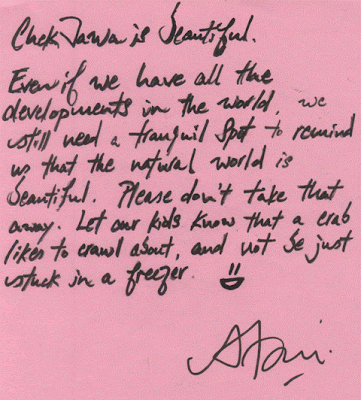 Chek Jawa is beautiful.
Even if we have all the
developments in the world, we
still need a tranquil spot to remind
us that the natural world is
beautiful. Please don't take that
away. Let our kids know that a crab
likes to crawl about, and not be just
stuck in a freezer.